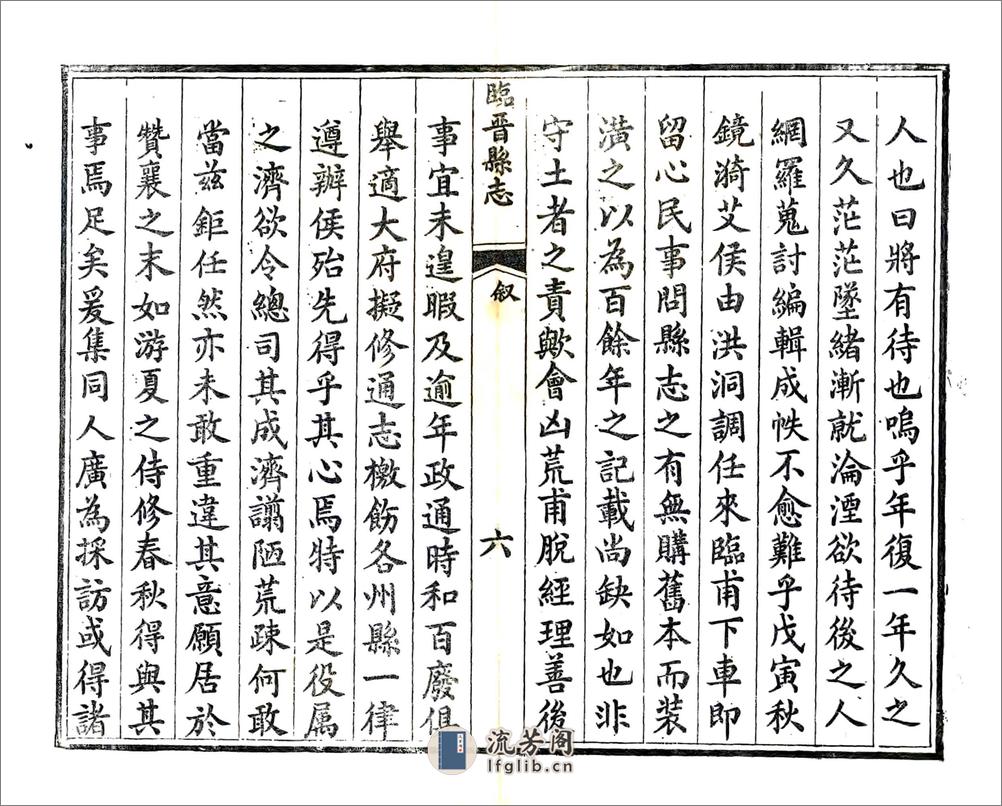 人也曰將有待也嗚乎年復一年久之
又久茫茫墜緒漸就淪湮欲待後之人
網羅蒐討編輯成帙不愈難乎戊寅秋
鏡漪艾侯由洪洞調任來臨甫下車即
留心民事問縣志之有無購舊本而裝
潢之以為百餘年之記載尚缺如也非
守土者之責歟會凶荒甫脫經理善後
臨晉縣志
叙
六
事宜未遑暇及逾年政通時和百廢俱
舉適大府擬修通志檄飭各州縣一律
遵辦侯殆先得乎其心焉特以是役属
之濟欲令總司其成濟謭陋荒疎何敢
當茲鉅任然亦未敢重違其意願居於
贊襄之末如游夏之侍修春秋得與其
事焉足矣爰集同人廣為採訪或得諸
流芳阁
lfglib.cn